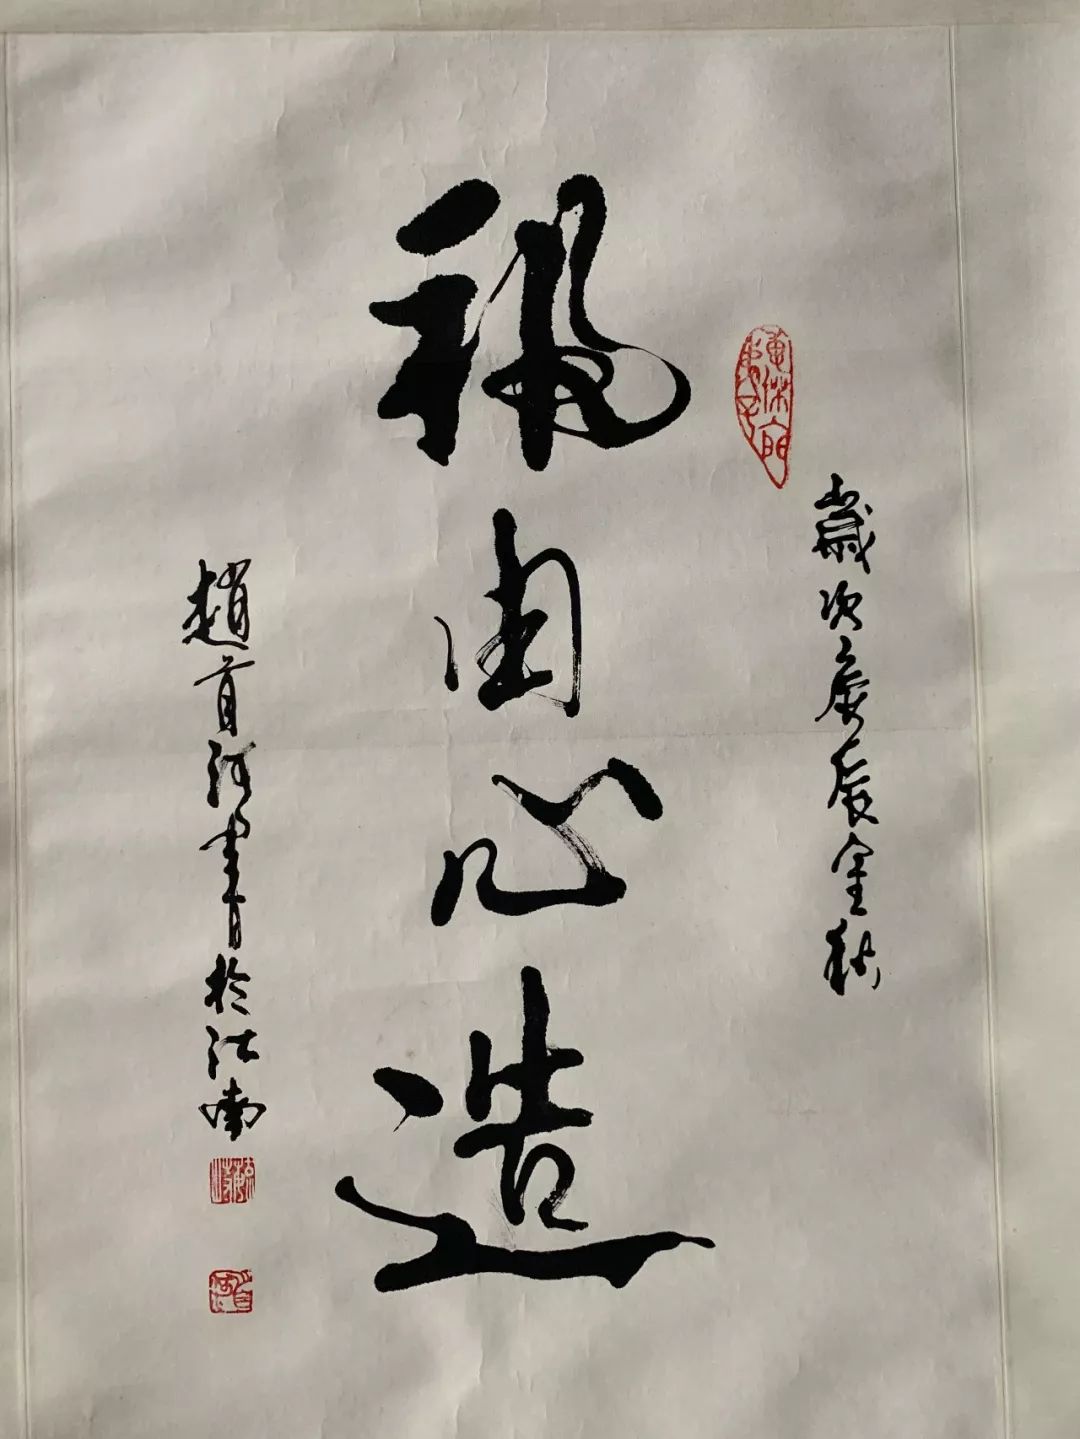 歲次庚辰金秋
福由心造
趙首河書於江南